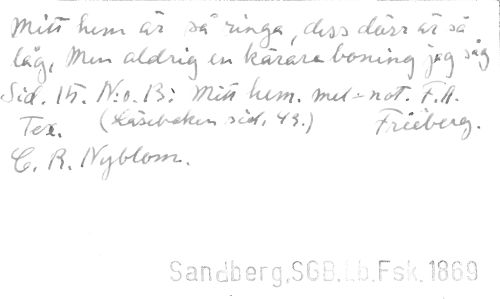 Mitt hem är så ringa, dess dörr är så
låg, Men aldrig en kärare boning jag såg
Sid. 15. N:o. 13: Mitt hem. mel=not. F.A.
Tex. (Läseboken sid. 43.) Frieberg.
C. R. Nyblom.
Sandberg,SGB,Lb.Fsk.1869